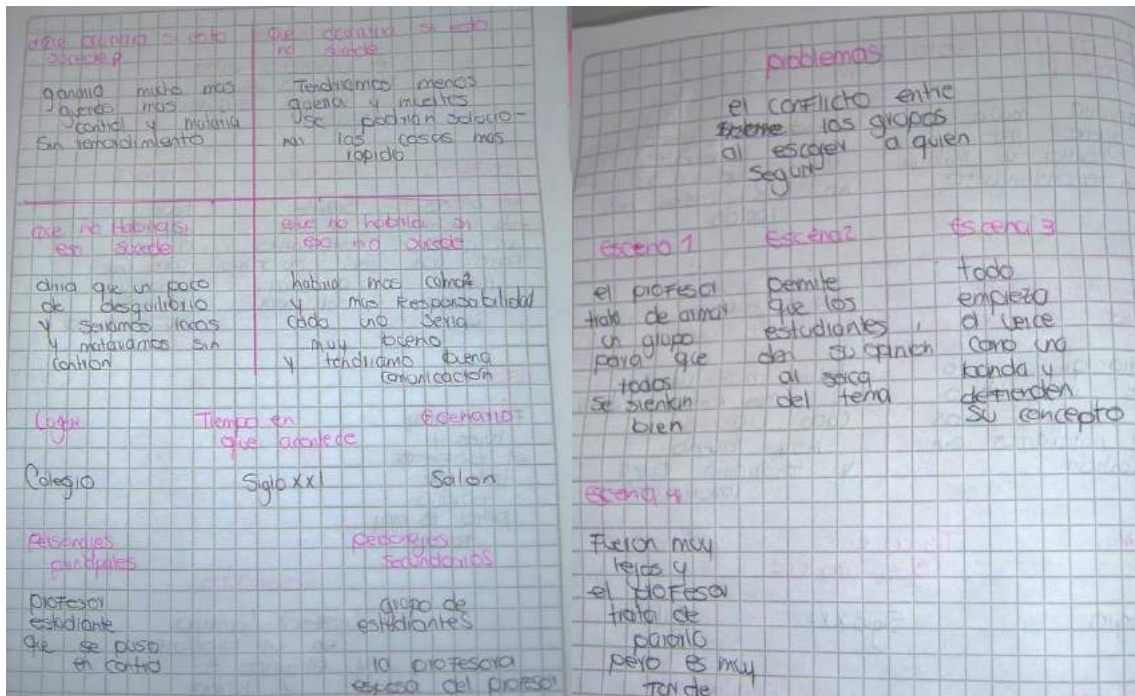 ¿que ocurriria si esto
sucede?
ganaria mucho mas
guerras mas
control y malaria
sin remordimiento
que ocurriria si esto
no sucede
Tendriamos menos
guerra y muertes
se podrian solucio-
nar las cosas mas
rapido
que no Habria si
eso sucede
diria que un poco
de desquilibrio
y seriamos locos
y matariamos sin
control
que no habria si
eso no sucede
habria mas calma
y mas Responsabilidad
cada uno seria
muy bueno
y tendriamo buena
comunicación
Lugar
Tiempo en
que acontede
Ecenario
Colegio
Siglo XXI
Salon
Personajes
principales
personajes
secundarios
profesor
estudiante
que se puso
en contra
grupo de
estudiantes
la profesora
esposa del profesor
problemas
el conflicto entre
los grupos
al escojer a quien
seguir
esceno 1
el profesor
trata de armar
un grupo
para que
todos
se sientan
bien
Escena 2
permite
que los
estudiantes
den su opinion
al serca
del tema
Escena 3
todo
empieza
a verce
como una
banda y
defienden
su concepto
escena 4
Fueron muy
lejos y
el profesor
trata de
pararlo
pero es muy
tarde